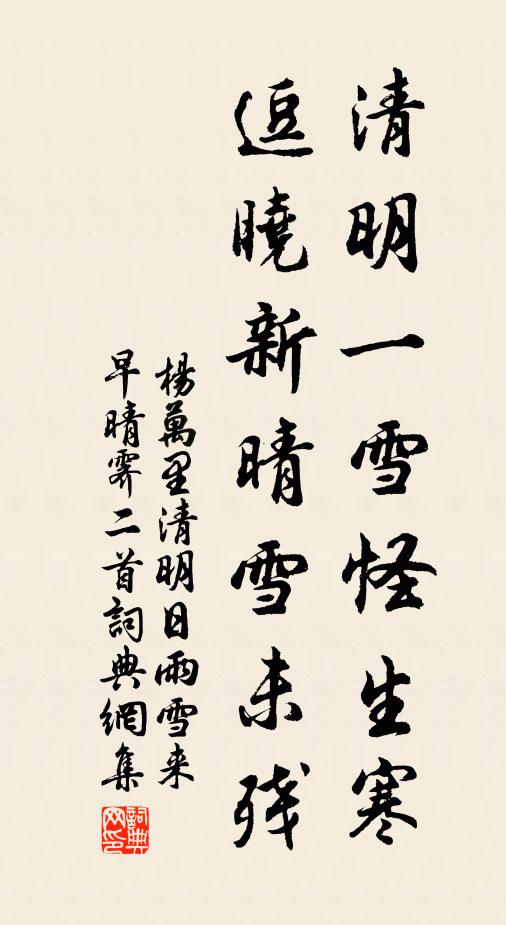 清明一雪怪生寒
逗曉新晴雪未殘
楊萬里清明日雨雪来
早晴霽二首詞典網集
詞典
网印